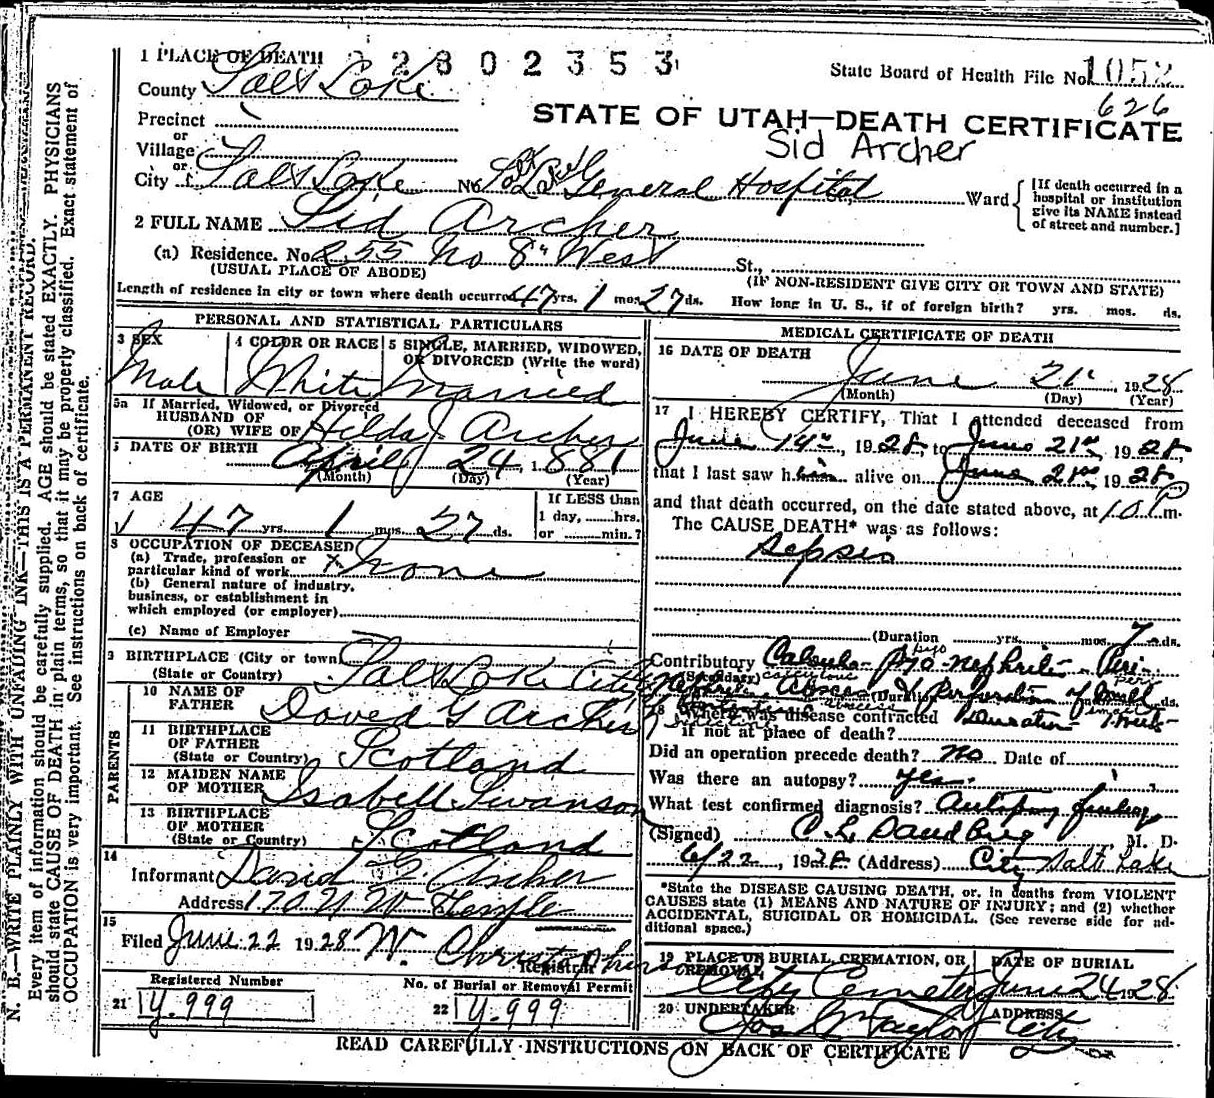 1 PLACE OF DEATH 2 2 8 0 2 3 5 3
State Board of Health File No. 1052
County Salt Lake
626
STATE OF UTAH—DEATH CERTIFICATE
Precinct
or
Sid Archer
Village
or
City Salt Lake No. Salt Lake General Hospital St., Ward
[If death occurred in a hospital or institution give its NAME instead of street and number.]
2 FULL NAME Sid Archer
(a) Residence. No. 255 No 8" West St.,
(USUAL PLACE OF ABODE) (IF NON-RESIDENT GIVE CITY OR TOWN AND STATE)
Length of residence in city or town where death occurred 47 yrs. 1 mos. 27 ds. How long in U. S., if of foreign birth? yrs. mos. ds.
PERSONAL AND STATISTICAL PARTICULARS
3 SEX 4 COLOR OR RACE 5 SINGLE, MARRIED, WIDOWED, OR DIVORCED (Write the word)
Male White Married
5a If Married, Widowed, or Divorced
HUSBAND OF
(OR) WIFE OF Hilda J Archer
DATE OF BIRTH April 24, 1881
(Month) (Day) (Year)
7 AGE If LESS than
1 day, ......hrs.
47 yrs. 1 mos. 27 ds. or ......min.?
8 OCCUPATION OF DECEASED
(a) Trade, profession or
particular kind of work None
(b) General nature of industry,
business, or establishment in
which employed (or employer)
(c) Name of Employer
9 BIRTHPLACE (City or town) Salt Lake City
(State or Country)
PARENTS
10 NAME OF
FATHER David G Archer
11 BIRTHPLACE
OF FATHER
(State or Country) Scotland
12 MAIDEN NAME
OF MOTHER Isabell Swanson
13 BIRTHPLACE
OF MOTHER
(State or Country) Scotland
14
Informant David G Archer
Address 170 N W Temple
15
Filed June 22 1928 W. Christophers
Registrar
Registered Number No. of Burial or Removal Permit
21 Y.999 22 Y.999
MEDICAL CERTIFICATE OF DEATH
16 DATE OF DEATH
June 21, 1928
(Month) (Day) (Year)
17 I HEREBY CERTIFY, That I attended deceased from
June 14th, 1928, to June 21st, 1928,
that I last saw him alive on June 21st, 1928
and that death occurred, on the date stated above, at 10 P m.
The CAUSE DEATH* was as follows:
Sepsis
(Duration ......yrs. ......mos. 7 ds.
Contributory Calculus pyo-nephritis Peri
(Secondary)
Abscess Perforation of small
18 Where was disease contracted Duration
if not at place of death?
Did an operation precede death? No Date of
Was there an autopsy? Yes.
What test confirmed diagnosis? Autopsy finding
(Signed) M. D.
6/22, 1928 (Address) City Salt Lake
*State the DISEASE CAUSING DEATH, or, in deaths from VIOLENT
CAUSES state (1) MEANS AND NATURE OF INJURY; and (2) whether
ACCIDENTAL, SUICIDAL OR HOMICIDAL. (See reverse side for ad-
ditional space.)
19 PLACE OF BURIAL, CREMATION, OR REMOVAL DATE OF BURIAL
City Cemetery June 24 1928
20 UNDERTAKER ADDRESS
Jos Wm Taylor City
READ CAREFULLY INSTRUCTIONS ON BACK OF CERTIFICATE
N. B.—WRITE PLAINLY WITH UNFADING INK—THIS IS A PERMANENT RECORD.
Every item of information should be carefully supplied. AGE should be stated EXACTLY. PHYSICIANS
should state CAUSE OF DEATH in plain terms, so that it may be properly classified. Exact statement of
OCCUPATION is very important. See instructions on back of certificate.